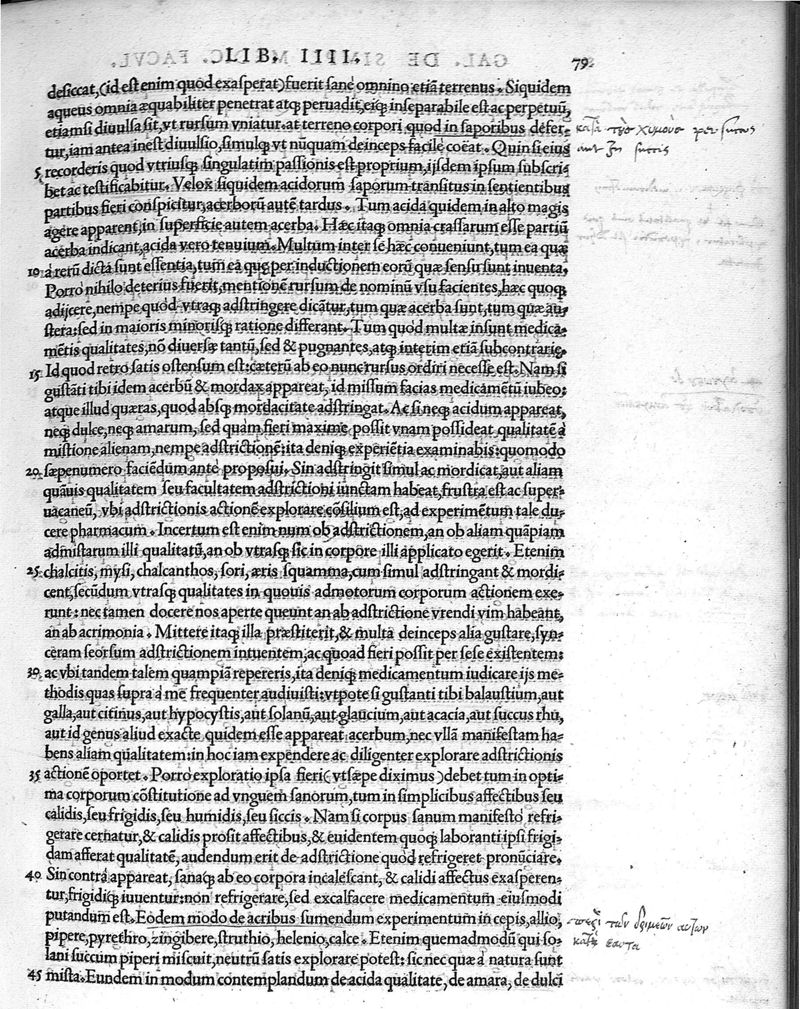 LIB. IIII. 79
desiccat,(id est enim quod exasperat)fuerit sanè omnino etiã terrenus. Siquidem
aqueus omnia æquabiliter penetrat atq; peruadit, eiq; inseparabile est ac perpetuũ,
etiamsi diuulsa sit, vt rursum vniatur. at terreno corpori quod in saporibus defer-
tur, iam antea inest diuulsio, simulq; vt nũquam deinceps facile coëat. Quin si eius
5 recorderis quod vtriusq; singulatim passionis est proprium, ijsdem ipsum subscri
bet ac testificabitur. Velox siquidem acidorum saporum transitus in sentientibus
partibus fieri conspicitur, acerborũ autẽ tardus. Tum acida quidem in alto magis
agere apparent, in superficie autem acerba. Hæc itaq; omnia crassarum esse partiũ
acerba indicant, acida vero tenuium. Multum inter se hæc conueniunt, tum ea quæ
10 a rerũ dicta sunt essentia, tum ea quę per inductionem eorũ quæ sensu sunt inuenta.
Porrò nihilo deterius fuerit, mentionẽ rursum de nominũ vsu facientes, hæc quoq;
adijcere, nempe quod vtraq; adstringere dicãtur, tum quæ acerba sunt, tum quæ au-
stera: sed in maioris minorisq; ratione differant. Tum quod multæ insunt medica-
mẽtis qualitates, nõ diuersæ tantũ, sed & pugnantes, atq; interim etiã subcontrarię.
15 Id quod retro satis ostensum est: cæterũ ab eo nunc rursus ordiri necesse est. Nam si
gustãti tibi idem acerbũ & mordax appareat, id missum facias medicamẽtũ iubeo:
atque illud quæras, quod absq; mordacitate adstringat. Ac si neq; acidum appareat,
neq; dulce, neq; amarum, sed quam fieri maxime possit vnam possideat qualitatẽ à
mistione alienam, nempe adstrictionẽ: ita deniq; experiẽtia examinabis: quomodo
20 sæpenumero faciẽdum ante proposui. Sin adstringit simul ac mordicat, aut aliam
quãuis qualitatem seu facultatem adstrictioni iunctam habeat, frustra est ac super-
uacaneũ, vbi adstrictionis actionẽ explorare cõsilium est, ad experimẽtum tale du-
cere pharmacum. Incertum est enim num ob adstrictionem, an ob aliam quãpiam
admistarum illi qualitatũ, an ob vtrasq; sic in corpore illi applicato egerit. Etenim
25 chalcitis, mysi, chalcanthos, sori, æris squamma, cum simul adstringant & mordi-
cent, secũdum vtrasq; qualitates in quouis admotorum corporum actionem exe-
runt: nec tamen docere nos aperte queunt an ab adstrictione vrendi vim habeant,
an ab acrimonia. Mittere itaq; illa præstiterit, & multa deinceps alia gustare, syn-
ceram seorsum adstrictionem intuentem, ac quoad fieri possit per sese existentem:
30 ac vbi tandem talem quampiã repereris, ita deniq; medicamentum iudicare ijs me-
thodis quas supra à me frequenter audiuisti: vtpote si gustanti tibi balaustium, aut
galla, aut citinus, aut hypocystis, aut solanũ, aut glaucium, aut acacia, aut succus rhu,
aut id genus aliud exacte quidem esse appareat acerbum, nec vllã manifestam ha-
bens aliam qualitatem: in hoc iam expendere ac diligenter explorare adstrictionis
35 actionẽ oportet. Porrò exploratio ipsa fieri(vt sæpe diximus)debet tum in opti-
ma corporum cõstitutione ad vnguem sanorum, tum in simplicibus affectibus seu
calidis, seu frigidis, seu humidis, seu siccis. Nam si corpus sanum manifesto refri-
gerare cernatur, & calidis prosit affectibus, & euidentem quoq; laboranti ipsi frigi-
dam afferat qualitatẽ, audendum erit de adstrictione quod refrigeret pronũciare.
40 Sin contrà appareat, sanaq; ab eo corpora incalescant, & calidi affectus exasperen-
tur, frigidiq; iuuentur: non refrigerare, sed excalfacere medicamentum eiusmodi
putandum est. Eodem modo de acribus sumendum experimentum in cepis, allio,
pipere, pyrethro, zingibere, struthio, helenio, calce. Etenim quemadmodũ qui so-
lani succum piperi miscuit, neutrũ satis explorare potest: sic nec quæ à natura sunt
45 mista. Eundem in modum contemplandum de acida qualitate, de amara, de dulci
κατὰ τοὺς χυμοὺς per succos
aut in succis
περὶ τῶν δριμέων αὐτῶν